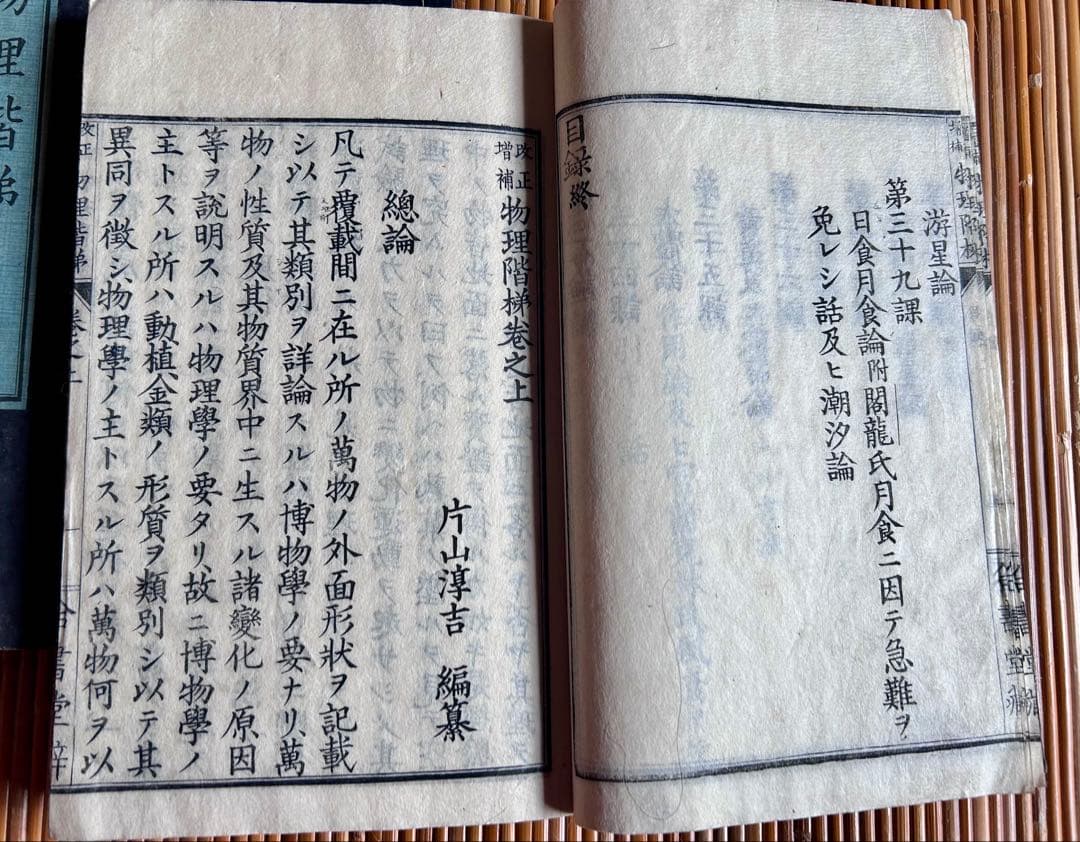 游星論
第三十九課
日食月食論附閣龍氏月食ニ因テ急難ヲ
免レシ話及ヒ潮汐論
目録終
改正増補物理階梯卷之上
片山淳吉 編纂
總論
凡テ覆載間ニ在ル所ノ萬物ノ外面形状ヲ記載
シ以テ其類別ヲ詳論スルハ博物學ノ要ナリ、萬
物ノ性質及其物質界中ニ生スル諸變化ノ原因
等ヲ説明スルハ物理學ノ要タリ、故ニ博物學ノ
主トスル所ハ動植金類ノ形質ヲ類別シ以テ其
異同ヲ徴シ、物理學ノ主トスル所ハ萬物何ヲ以
改正 物理階梯 卷之上
理階梯